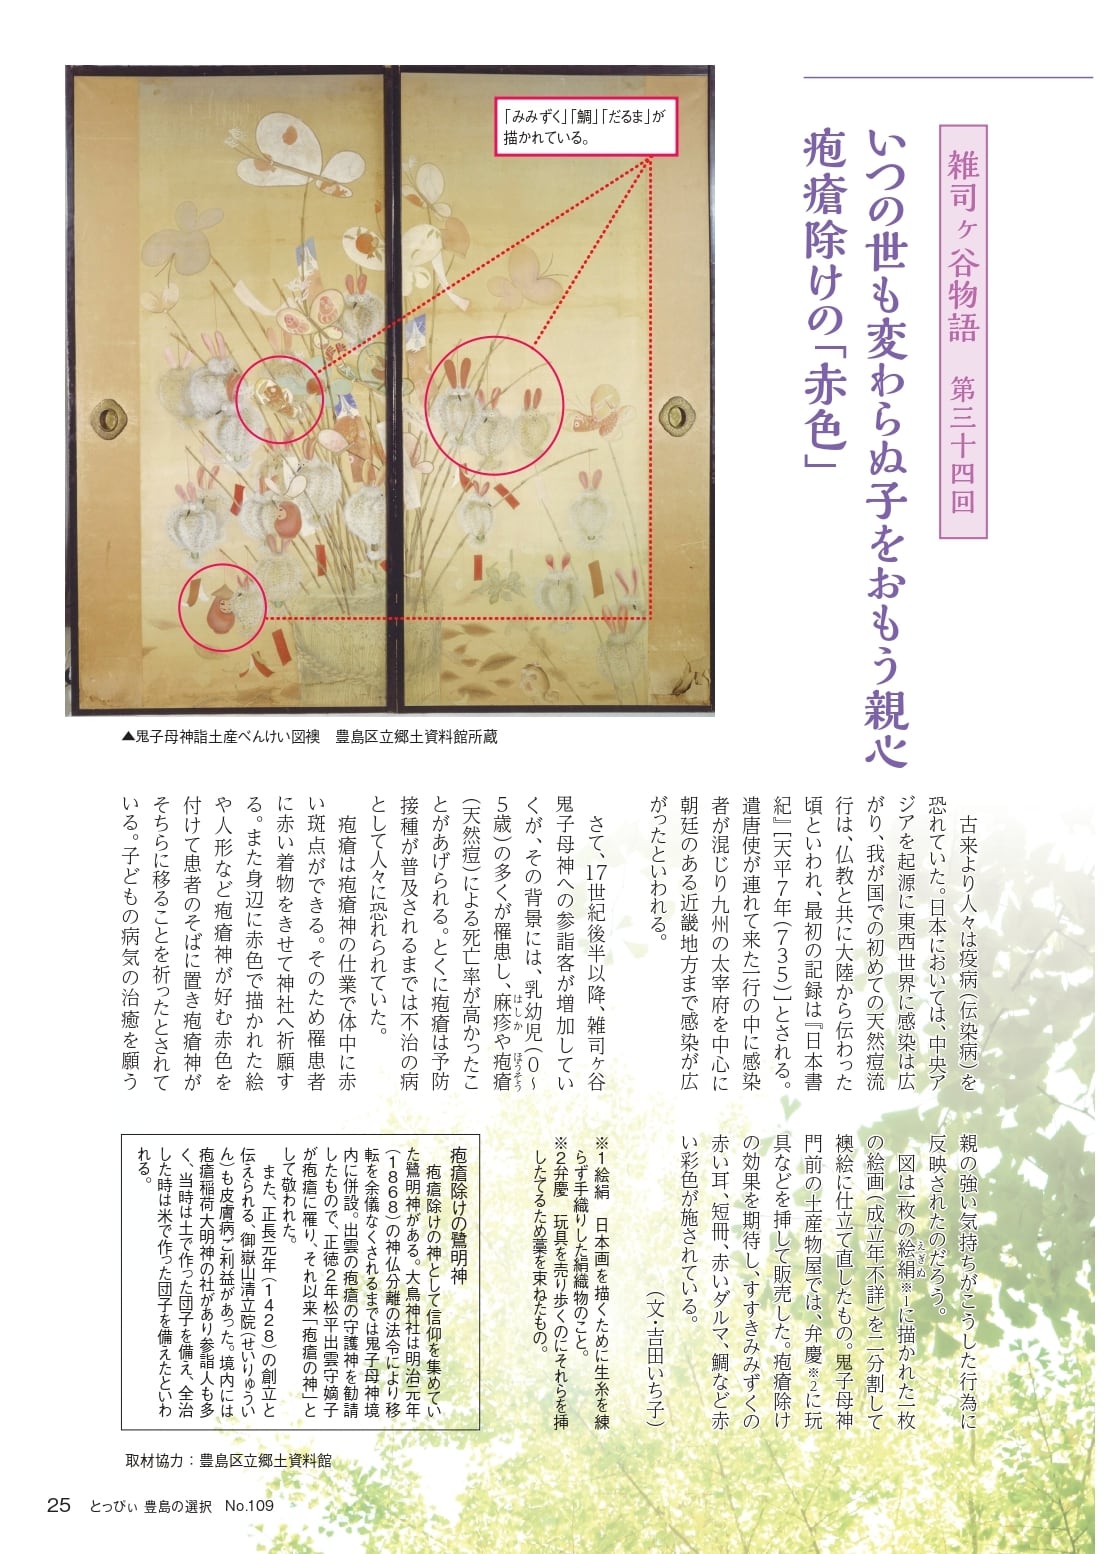 雑司ヶ谷物語　第三十四回
いつの世も変わらぬ子をおもう親心
疱瘡除けの「赤色」
「みみずく」「鯛」「だるま」が
描かれている。
▲鬼子母神詣土産べんけい図襖　豊島区立郷土資料館所蔵
　古来より人々は疫病（伝染病）を
恐れていた。日本においては、中央ア
ジアを起源に東西世界に感染は広
がり、我が国での初めての天然痘流
行は、仏教と共に大陸から伝わった
頃といわれ、最初の記録は『日本書
紀』［天平７年（７３５）］とされる。
遣唐使が連れて来た一行の中に感染
者が混じり九州の太宰府を中心に
朝廷のある近畿地方まで感染が広
がったといわれる。
　さて、17世紀後半以降、雑司ヶ谷
鬼子母神への参詣客が増加してい
くが、その背景には、乳幼児（０〜
５歳）の多くが罹患し、麻疹（はしか）や疱瘡（ほうそう）
（天然痘）による死亡率が高かったこ
とがあげられる。とくに疱瘡は予防
接種が普及されるまでは不治の病
として人々に恐れられていた。
　疱瘡は疱瘡神の仕業で体中に赤
い斑点ができる。そのため罹患者
に赤い着物をきせて神社へ祈願す
る。また身辺に赤色で描かれた絵
や人形など疱瘡神が好む赤色を
付けて患者のそばに置き疱瘡神が
そちらに移ることを祈ったとされて
いる。子どもの病気の治癒を願う
親の強い気持ちがこうした行為に
反映されたのだろう。
　図は一枚の絵絹（えぎぬ）※1に描かれた一枚
の絵画（成立年不詳）を二分割して
襖絵に仕立て直したもの。鬼子母神
門前の土産物屋では、弁慶※2に玩
具などを挿して販売した。疱瘡除け
の効果を期待し、すすきみみずくの
赤い耳、短冊、赤いダルマ、鯛など赤
い彩色が施されている。
（文・吉田いち子）
※１絵絹　日本画を描くために生糸を練
らず手織りした絹織物のこと。
※２弁慶　玩具を売り歩くのにそれらを挿
したてるため藁を束ねたもの。
疱瘡除けの鷺明神
　疱瘡除けの神として信仰を集めてい
た鷺明神がある。大鳥神社は明治元年
（１８６８）の神仏分離の法令により移
転を余儀なくされるまでは鬼子母神境
内に併設。出雲の疱瘡の守護神を勧請
したもので、正徳２年松平出雲守嫡子
が疱瘡に罹り、それ以来「疱瘡の神」と
して敬われた。
　また、正長元年（１４２８）の創立と
伝えられる、御嶽山清立院（せいりゅうい
ん）も皮膚病ご利益があった。境内には
疱瘡稲荷大明神の社があり参詣人も多
く、当時は土で作った団子を備え、全治
した時は米で作った団子を備えたといわ
れる。
取材協力：豊島区立郷土資料館
25　とっぴぃ 豊島の選択　No.109